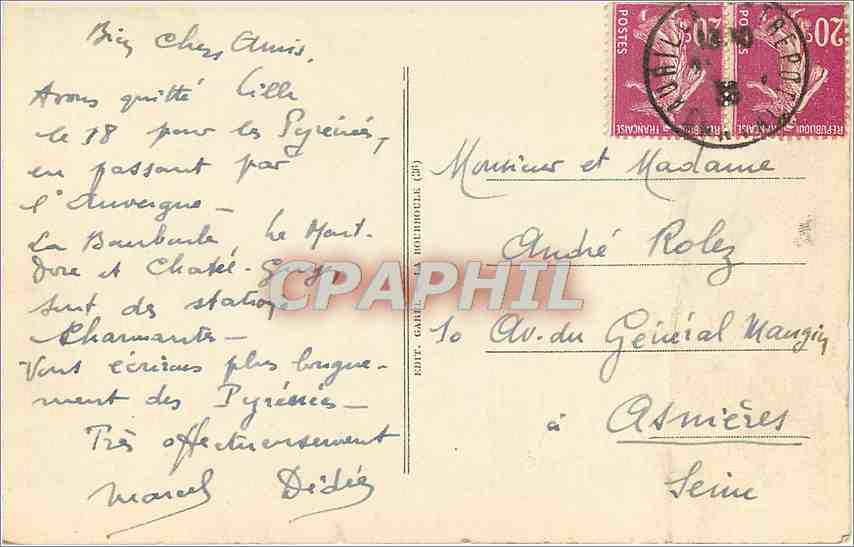 Bien Chers Amis,
Avons quitté Lille
le 18 pour les Pyrénées,
en passant par
l'Auvergne —
La Bourboule, Le Mont-
Dore et Chatel-Guyon
sont des stations
charmantes —
Vous écrirons plus longue-
ment des Pyrénées —
Très affectueusement
Marcel Dédée
EDIT. GABEL. LA BOURBOULE (36)
20c POSTES REPUBLIQUE FRANÇAISE
20c POSTES REPUBLIQUE FRANÇAISE
Monsieur et Madame
André Rolez
10 Av. du Général Mangin
à Asnières
Seine
CPAPHIL